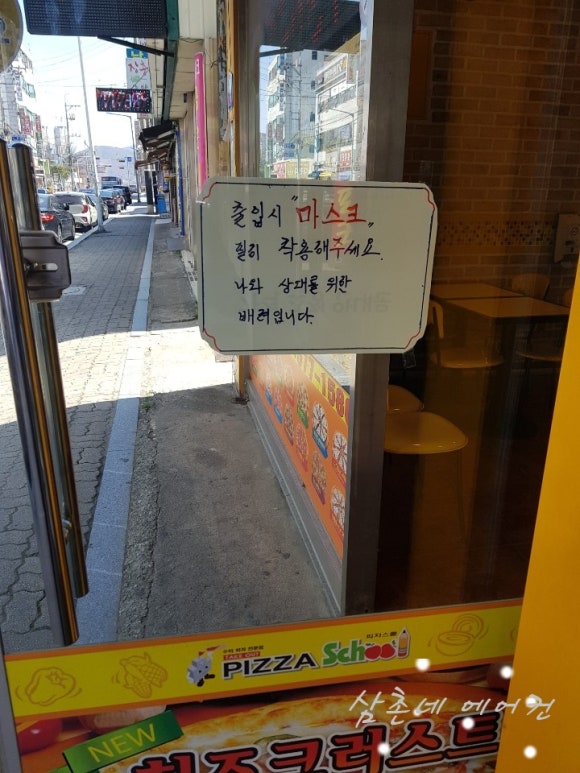 출입시 "마스크"
필히 착용해주세요.
나와 상대를 위한
배려입니다.
TAKE OUT
피자스쿨
PIZZA School
삼촌네 에어컨
NEW
치즈크러스트